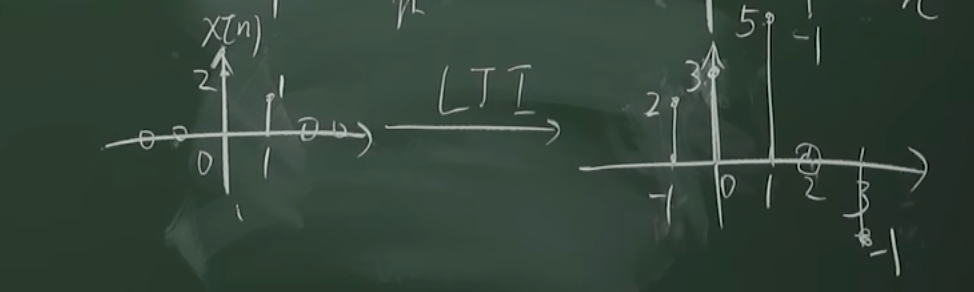 x[n]
2
1
0
1
LTI
5
-1
3
2
-1
0
1
2
3
-1